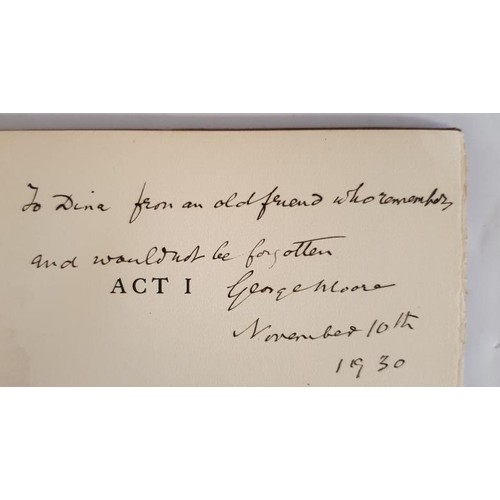 To Dina from an old friend who remembers
and would not be forgotten
ACT I George Moore
November 10th
1930